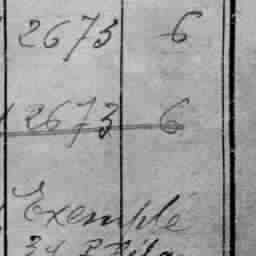 2673 6
2673 6
Exemple